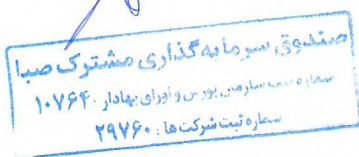 صندوق سرمایه گذاری مشترک صبا
شماره ثبت سازمان بورس و اوراق بهادار : ۱۰۷۶۴
شماره ثبت شرکت ها : ۲۹۷۶۰